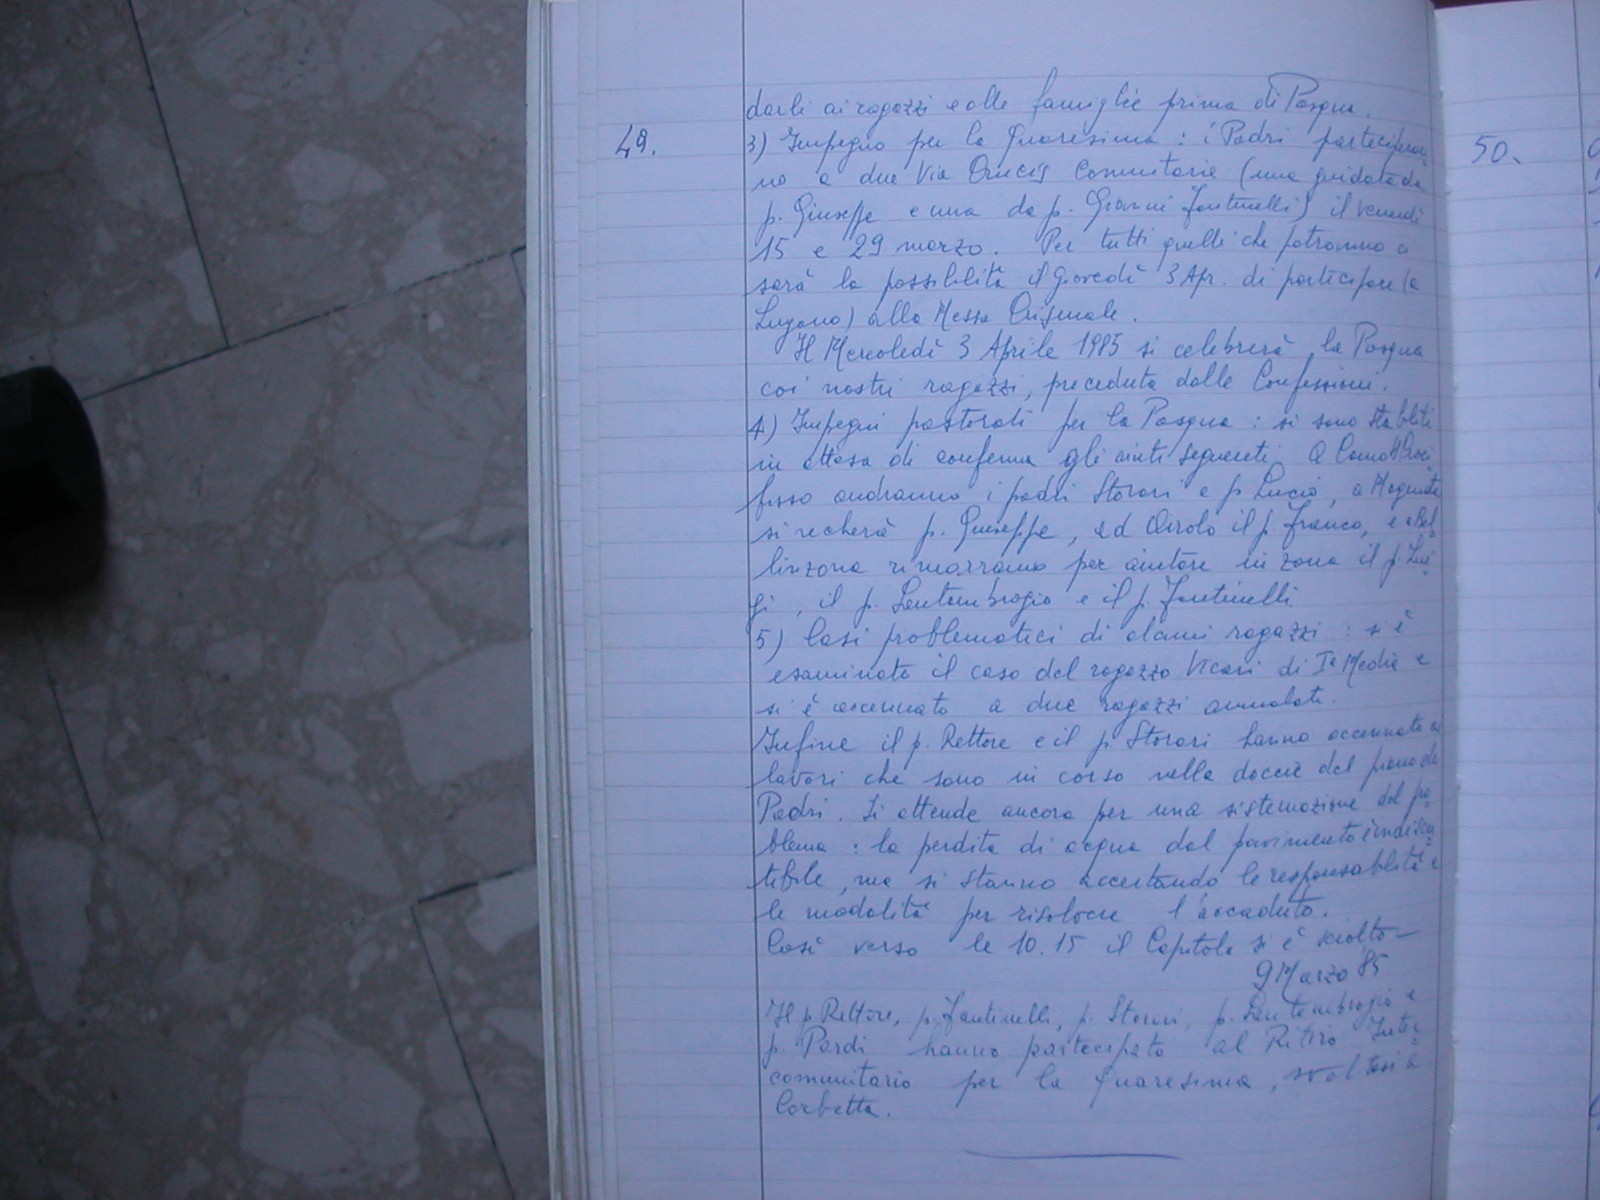 darli ai ragazzi e alle famiglie prima di Pasqua.
49.
3) Impegno per la Quaresima: i Padri parteciperan-
no a due Via Crucis Comunitarie (una guidata da
p. Giuseppe e una da p. Gianni Fantinelli) il venerdì
15 e 29 marzo. Per tutti quelli che potranno ci
sarà la possibilità il Giovedì 3 Apr. di partecipare (a
Lugano) alla Messa Crismale.
Il Mercoledì 3 Aprile 1985 si celebrerà la Pasqua
coi nostri ragazzi, preceduta dalle Confessioni.
4) Impegni pastorali per la Pasqua: si sono stabiliti
in attesa di conferma gli aiuti seguenti. A Como SS Croci-
fisso andranno i padri Storari e p. Lucio, a
si recherà p. Giuseppe, ad Airolo il p. Franco, e a Bel-
linzona rimarranno per aiutare in zona il p. Lui-
gi, il p. Santambrogio e il p. Fantinelli
5) Casi problematici di alcuni ragazzi: si è
esaminato il caso del ragazzo Vicari di Iª Media e
si è accennato a due ragazzi ammalati.
Infine il p. Rettore e il p. Storari hanno accennato ai
lavori che sono in corso nella doccie del piano dei
Padri. Si attende ancora per una sistemazione del pro-
blema: la perdita di acqua dal pavimento è indiscu-
tibile, ma si stanno accertando le responsabilità e
le modalità per risolvere l'accaduto.
Così verso le 10.15 il Capitolo si è sciolto —
9 Marzo 85
Il p. Rettore, p. Fantinelli, p. Storari, p. Santambrogio e
p. Pardi hanno partecipato al Ritiro Inter-
comunitario per la Quaresima, svoltosi a
Corbetta.
50.